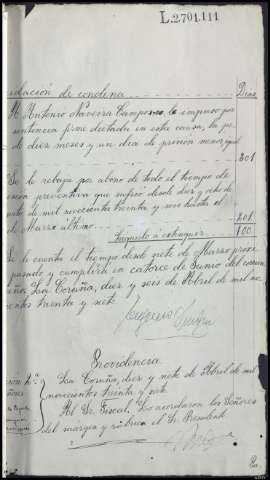 L.2701.111
idación de condena. Dias
A Antonio Naveira Campos se le impuso por
sentencia firme dictada en esta causa, la pe
de diez meses y un dia de prision menor que
301
Se le rebaja por abono de todo el tiempo de
sion preventiva que sufrio desde diez y ocho de
de mil novecientos treinta y seis hasta el
de Marzo ultimo 201
100
Se le cuenta el tiempo desde siete de Marzo proxi
pasado y cumplirá en catorce de Junio del corrien
La Coruña, diez y seis de Abril de mil no
cientos treinta y siete
Providencia
La Coruña, diez y siete de Abril de mil
novecientos treinta y siete
Al Sr. Fiscal. Lo acordaron los Señores
del margen y rubrica el Sr. Presidente